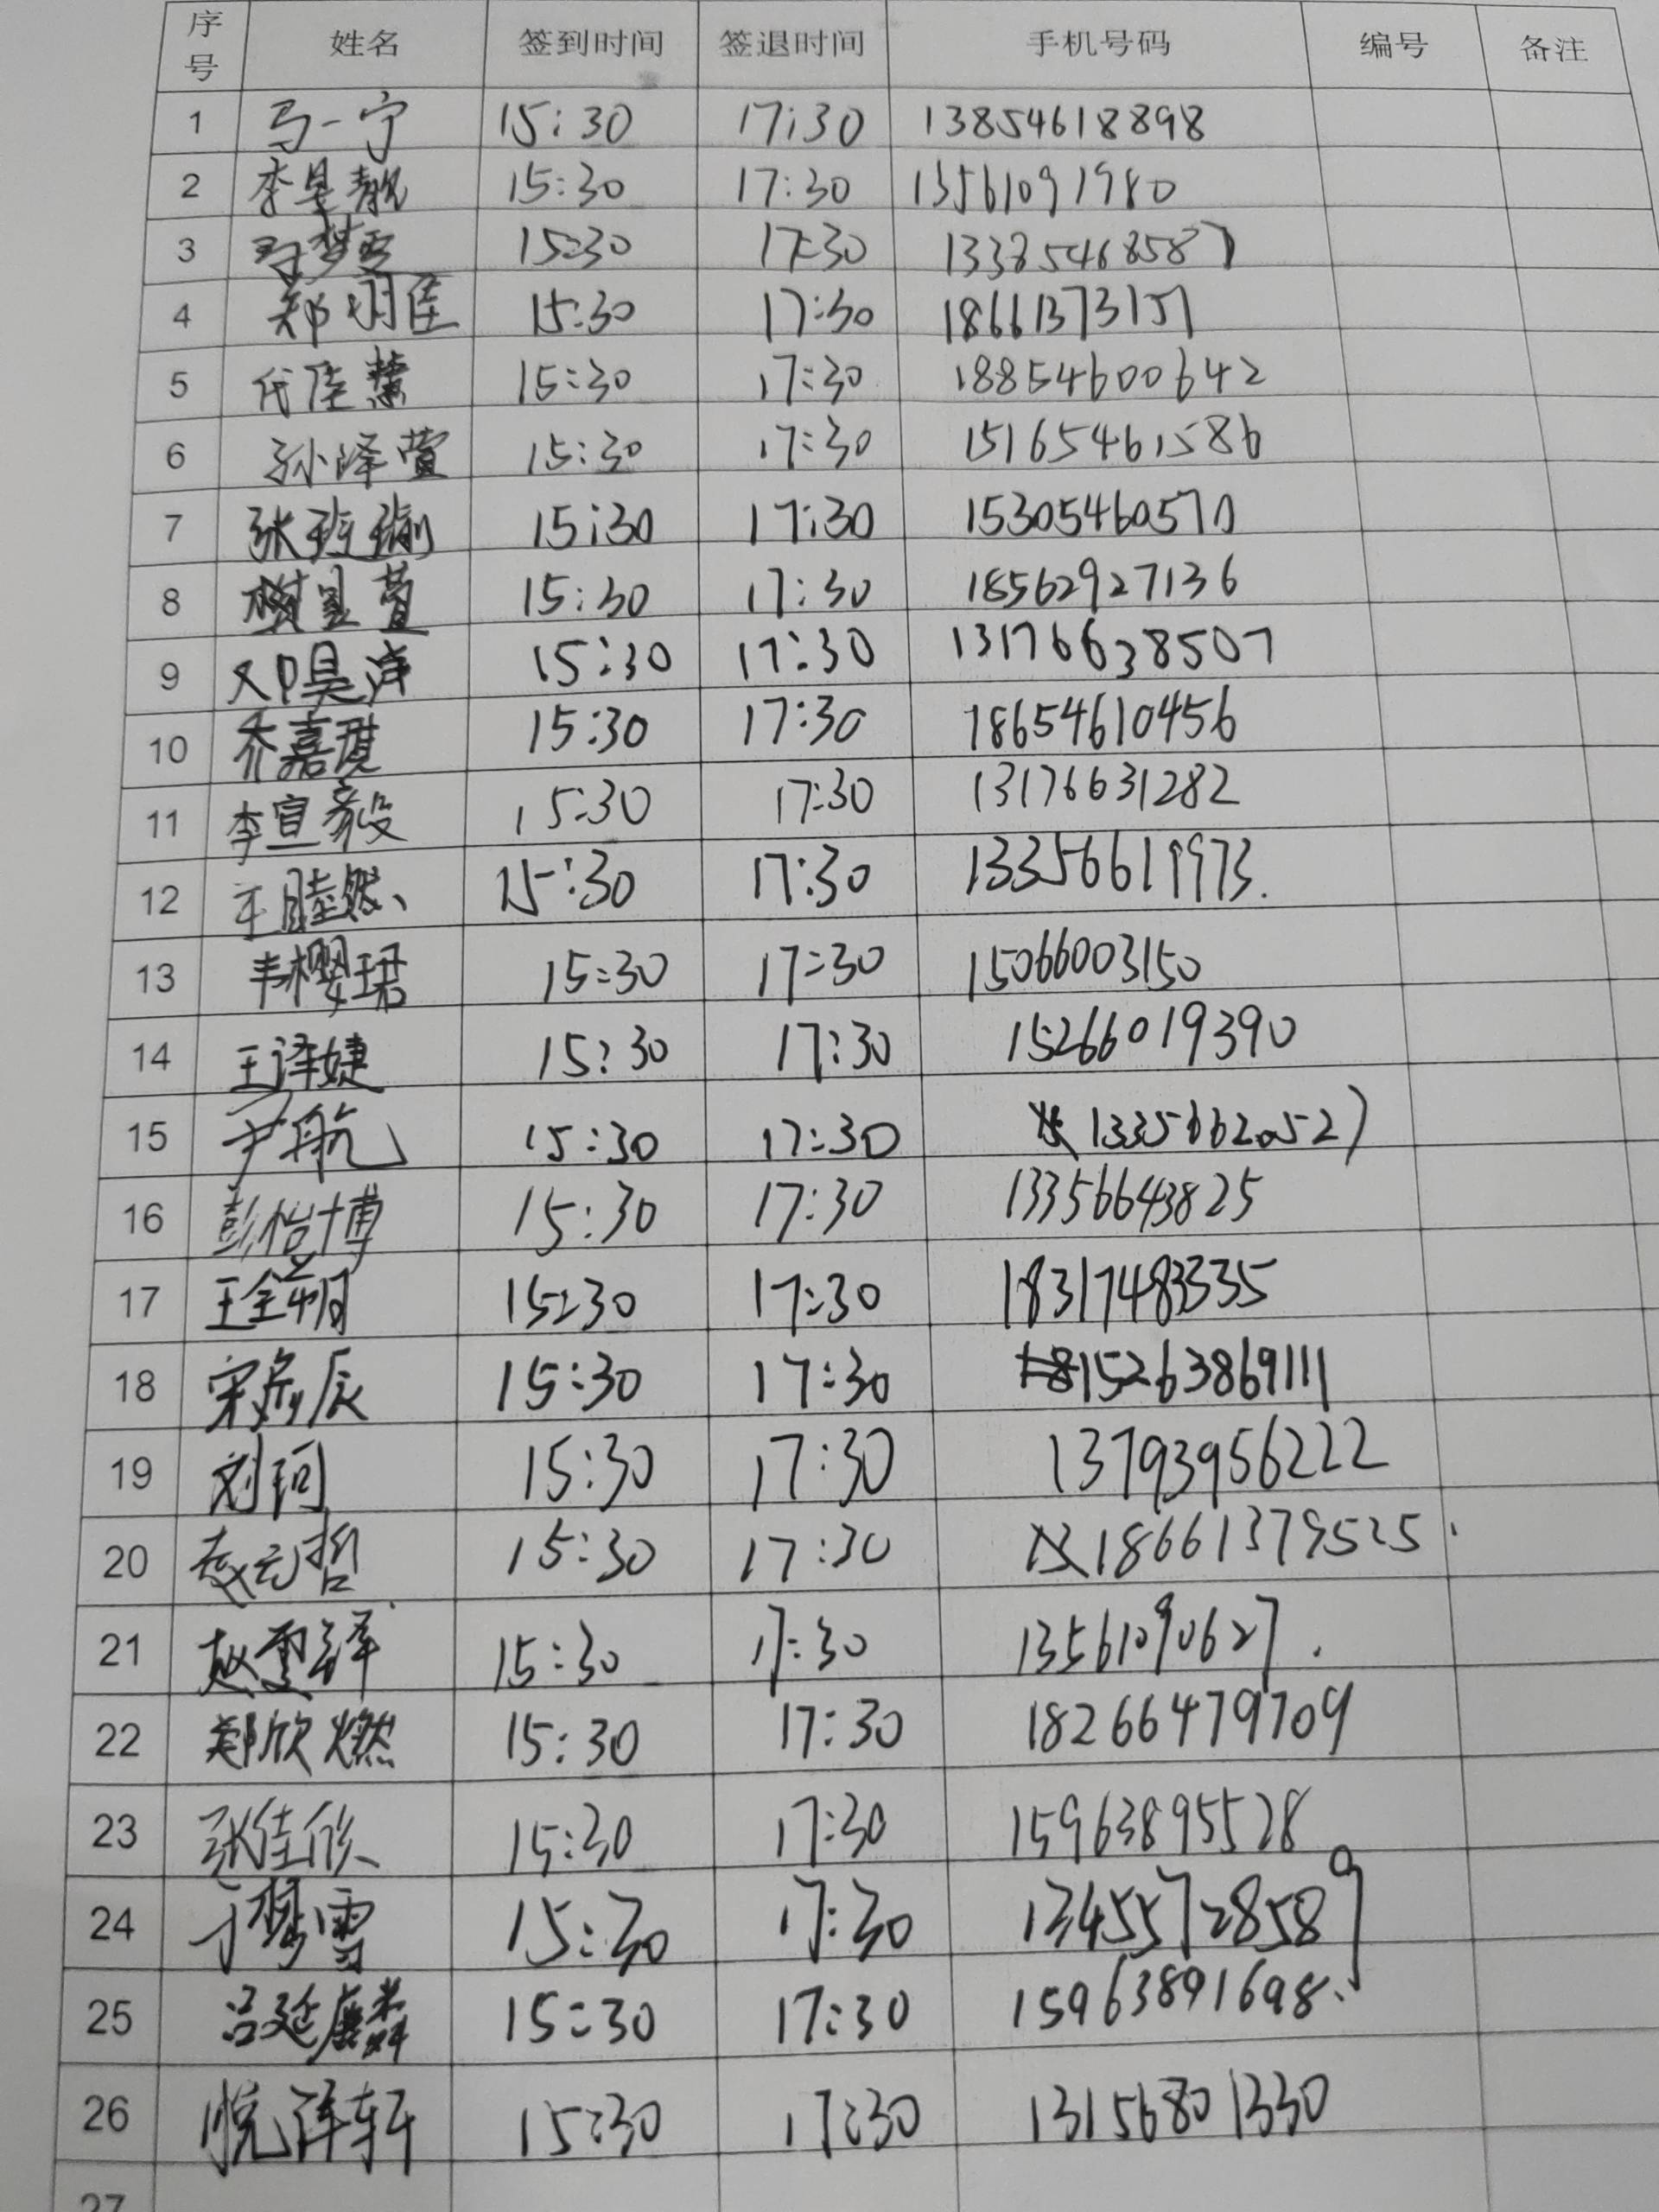 序号 姓名 签到时间 签退时间 手机号码 编号 备注
1 马一宁 15:30 17:30 13854618898
2 李昱靓 15:30 17:30 13561091980
3 15:30 17:30 13385468587
4 郑羽佳 15:30 17:30 18661373157
5 代佳慧 15:30 17:30 18854600642
6 孙泽萱 15:30 17:30 15165461586
7 张珺瑜 15:30 17:30 15305460570
8 15:30 17:30 18562927136
9 15:30 17:30 13176638507
10 乔嘉琪 15:30 17:30 18654610456
11 李宣毅 15:30 17:30 13176631282
12 王睦然 15:30 17:30 13356619973.
13 韦樱珺 15:30 17:30 15066003150
14 王译婕 15:30 17:30 15266019390
15 尹航 15:30 17:30 13356620527
16 彭怡博 15:30 17:30 13356643825
17 王全朔 15:30 17:30 18317483335
18 15:30 17:30 15263869111
19 刘珂 15:30 17:30 13793956222
20 李元哲 15:30 17:30 18661379525
21 赵雯铎 15:30 17:30 13561090627.
22 郑欣燃 15:30 17:30 18266479709
23 张佳欣 15:30 17:30 15963895528
24 于梦雪 15:30 17:30 13455728589
25 吕延麟 15:30 17:30 15963891698.
26 15:30 17:30 13156801330
27